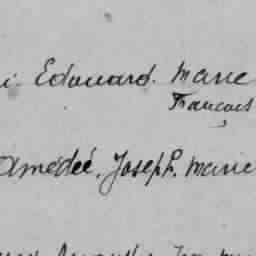 i. Edouard. Marie
Francois
Amédeé. Joseph. Marie